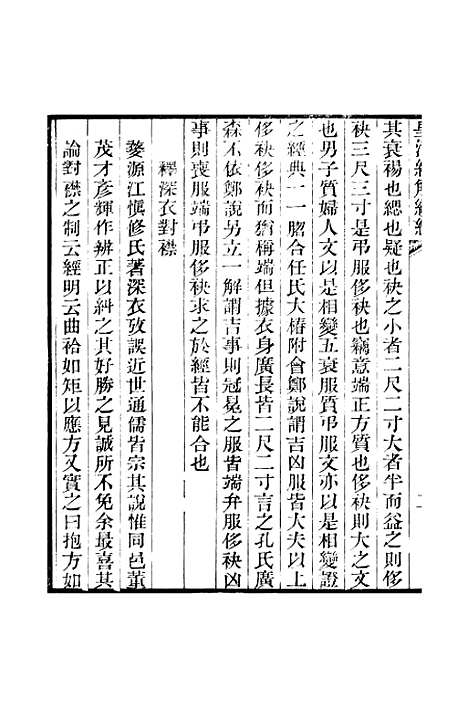 其衰裼也緦也疑也袂之小者二尺二寸大者半而益之則侈
袂三尺三寸是弔服侈袂也竊意端正方質也侈袂則大之文
也男子質婦人文以是相變五衰服質弔服文亦以是相變證
之經典一一脗合任氏大椿附會鄭說謂吉凶服皆大夫以上
侈袂侈袂而猶稱端但據衣身廣長皆二尺二寸言之孔氏廣
森不依鄭說另立一解謂吉事則冠冕之服皆端弁服侈袂凶
事則喪服端弔服侈袂求之於經皆不能合也
釋深衣對襟
婺源江愼修氏著深衣攷誤近世通儒皆宗其說惟同邑董
茂才彥輝作辨正以糾之其好勝之見誠所不免余最喜其
論對襟之制云經明云曲袷如矩以應方又實之曰抱方如